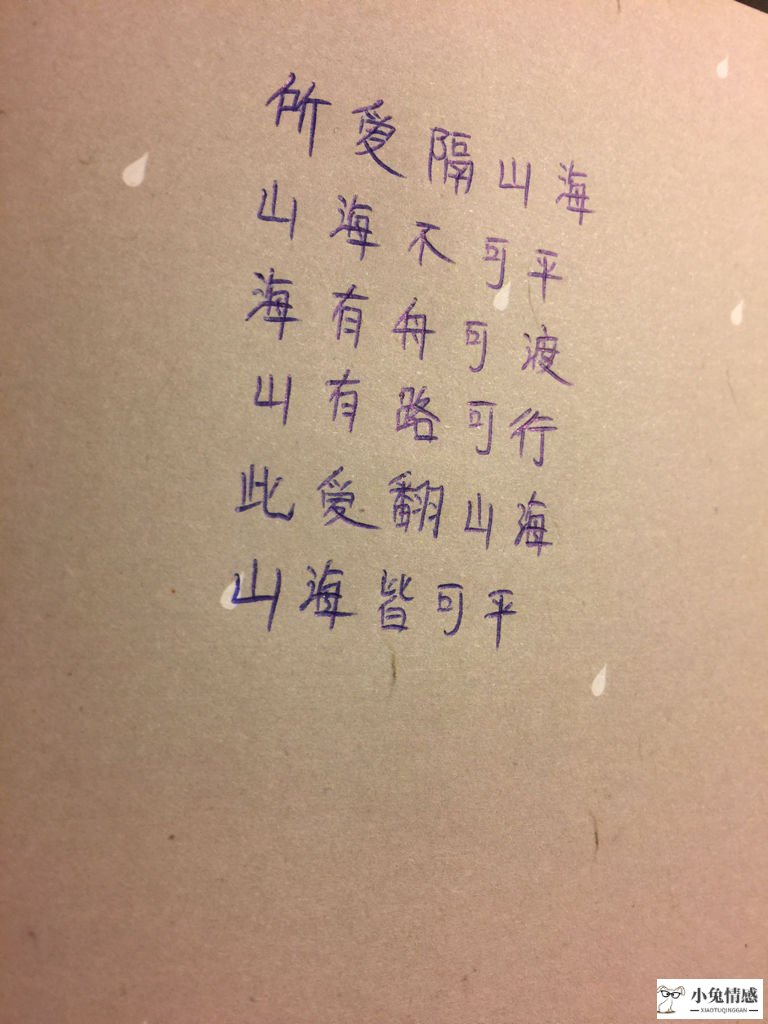 所爱隔山海
山海不可平
海有舟可渡
山有路可行
此爱翻山海
山海皆可平
小兔情感
XIAOTUQINGGAN